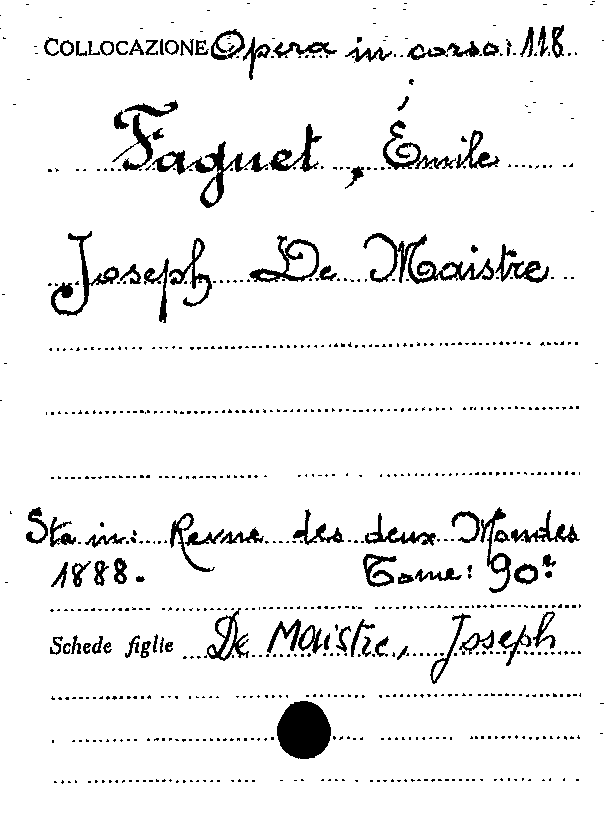 COLLOCAZIONE Opera in corso: 118
Faguet, Émile
Joseph De Maistre
Sta in: Revue des deux Mondes
1888. Tome: 90º
Schede figlie De Maistre, Joseph